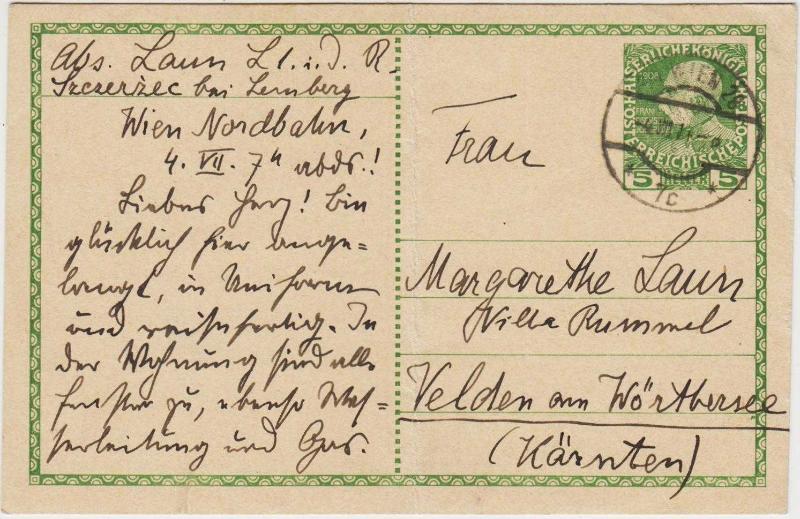 Abs. Laun Lt. i. d. R.
Szczerzec bei Lemberg
Wien Nordbahn,
4. VII. 7ʰ abds.!
Liebes Herz! Bin
glücklich hier ange=
langt, in Uniform
und reisefertig. In
der Wohnung sind alle
Fenster zu, ebenso Was=
serleitung und Gas.
Frau
Margarethe Laun
Villa Rummel
Velden am Wörthersee
(Kärnten)
1908
5 HELLER 5
WIEN
7c